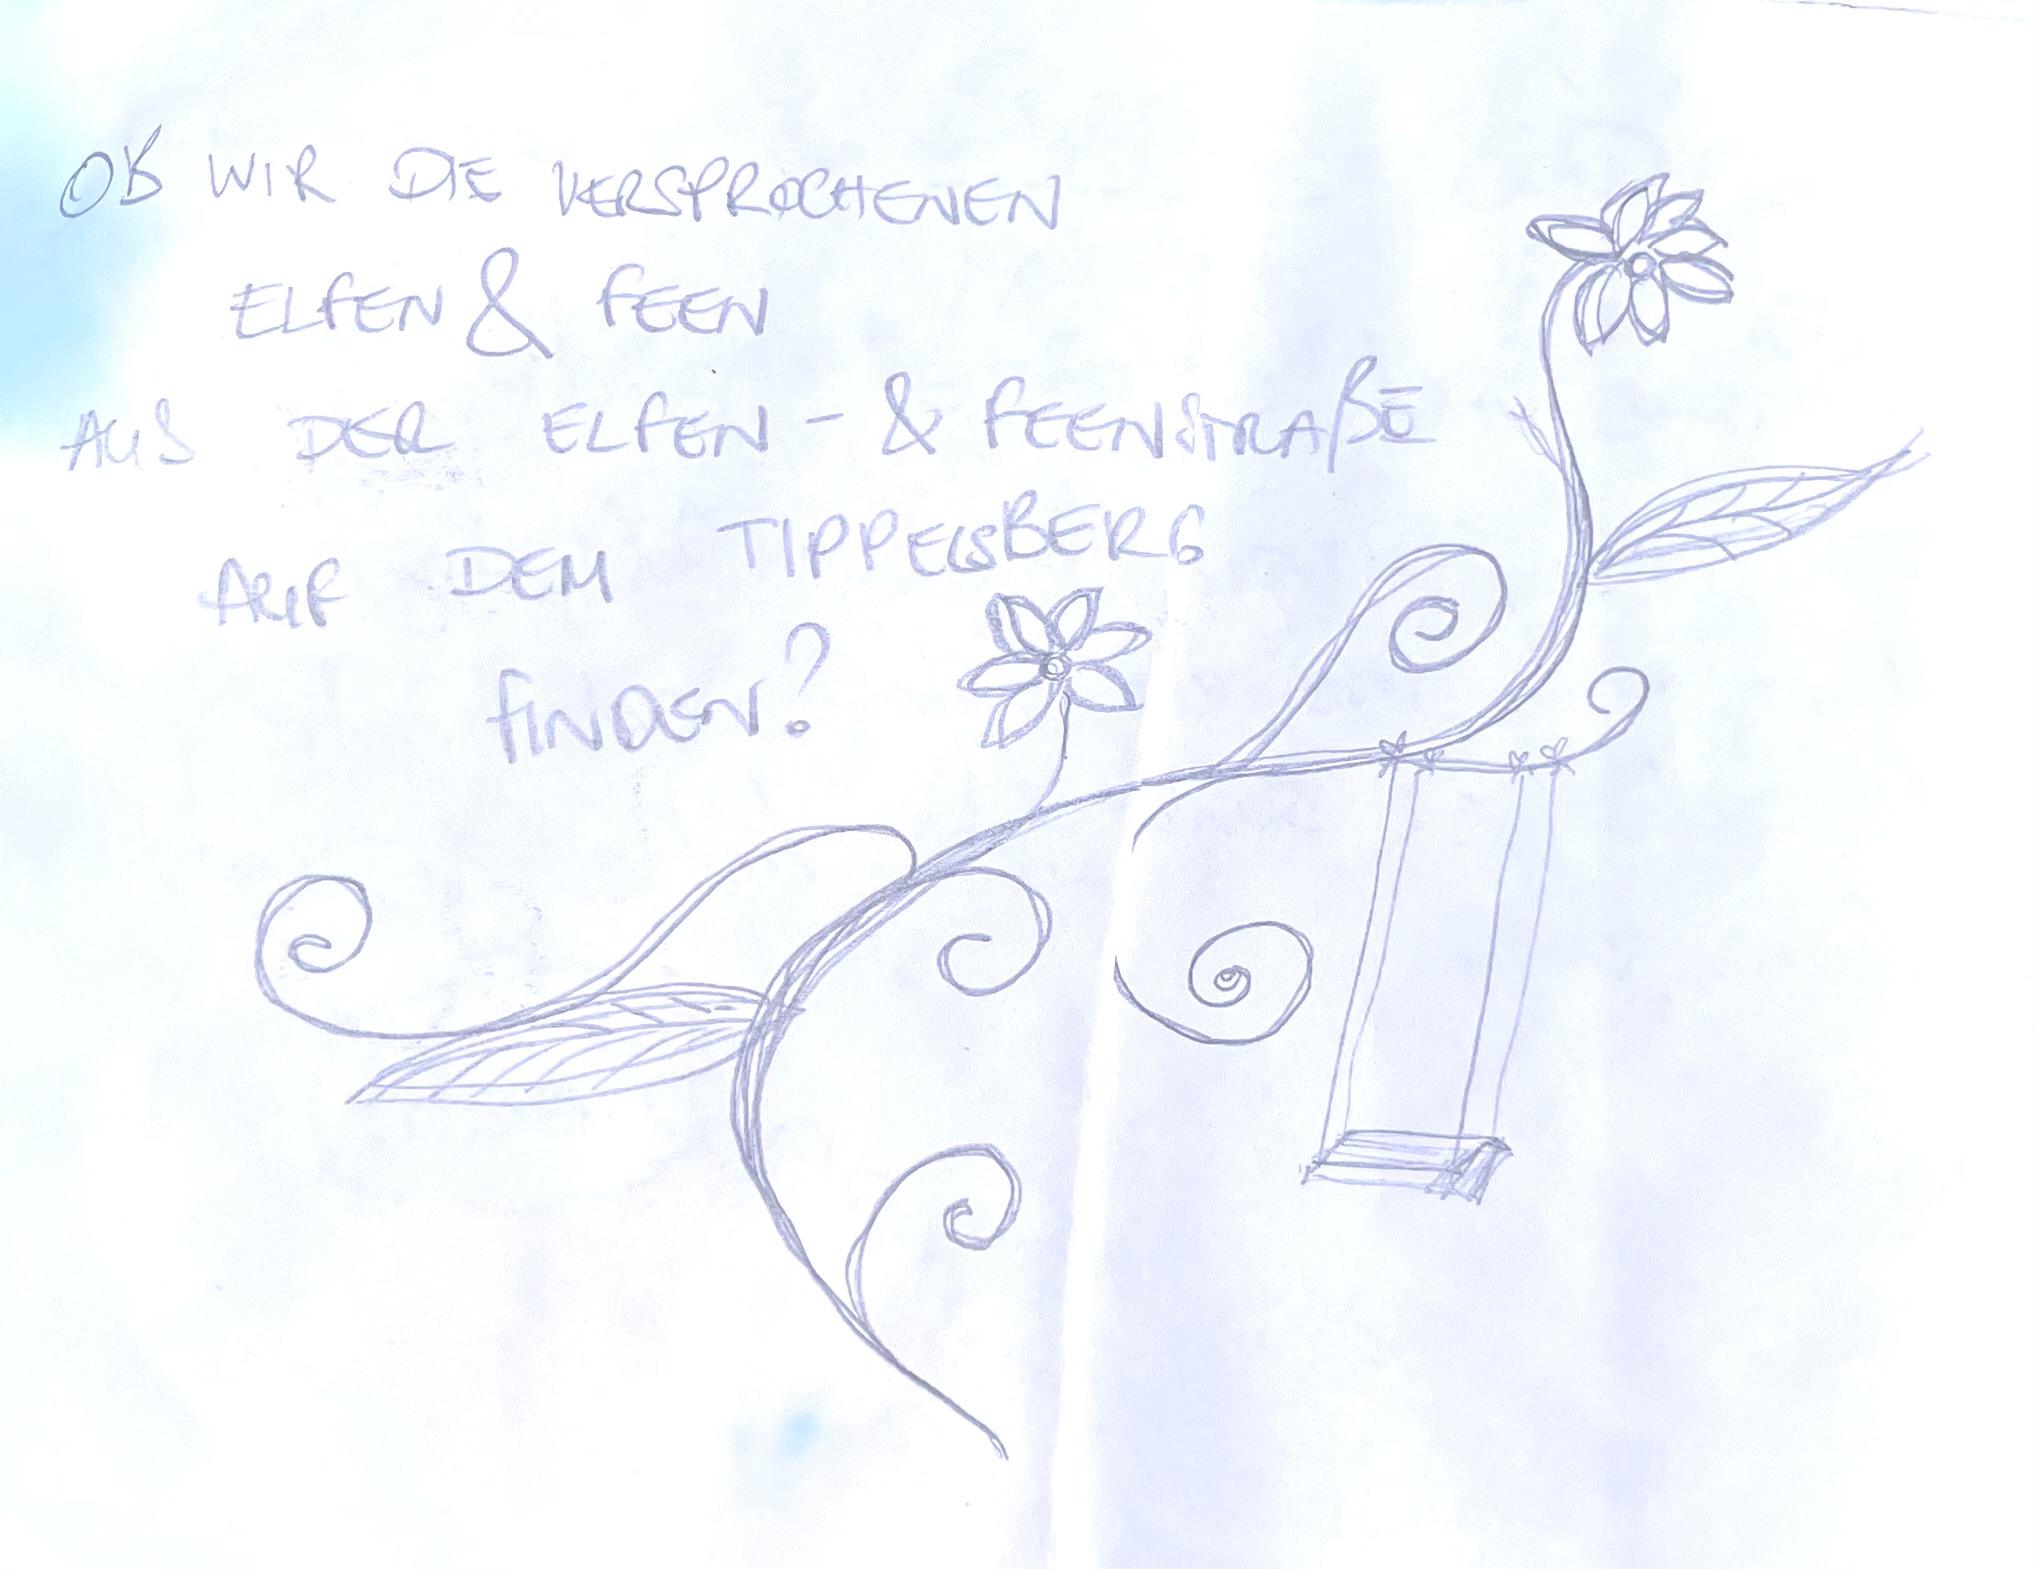 OB WIR DIE VERSPROCHENEN
ELFEN & FEEN
AUS DER ELFEN- & FEENSTRAßE
AUF DEM TIPPELSBERG
FINDEN?